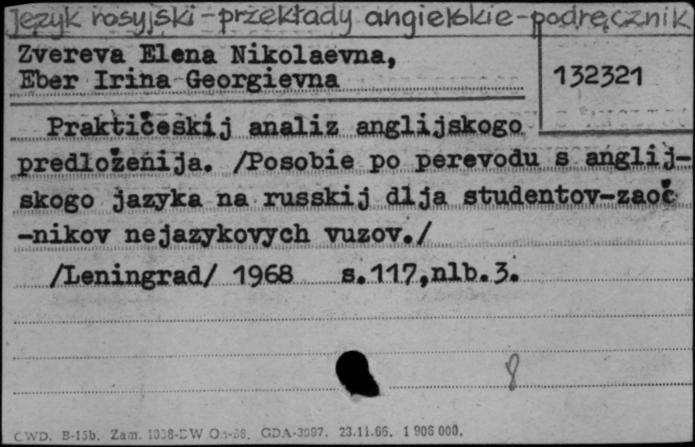 język rosyjski-przekłady angielskie-podręcznik
Zvereva Elena Nikolaevna,
Eber Irina Georgievna
132321
Praktičeskij analiz anglijskogo
predloženija. /Posobie po perevodu s anglij-
skogo jazyka na russkij dlja studentov-zaoč
-nikov nejazykovych vuzov./
/Leningrad/ 1968 s.117,nlb.3.
8
CWD. B-15b. Zam. GDA-3097. 23.11.66. 1 906 000.